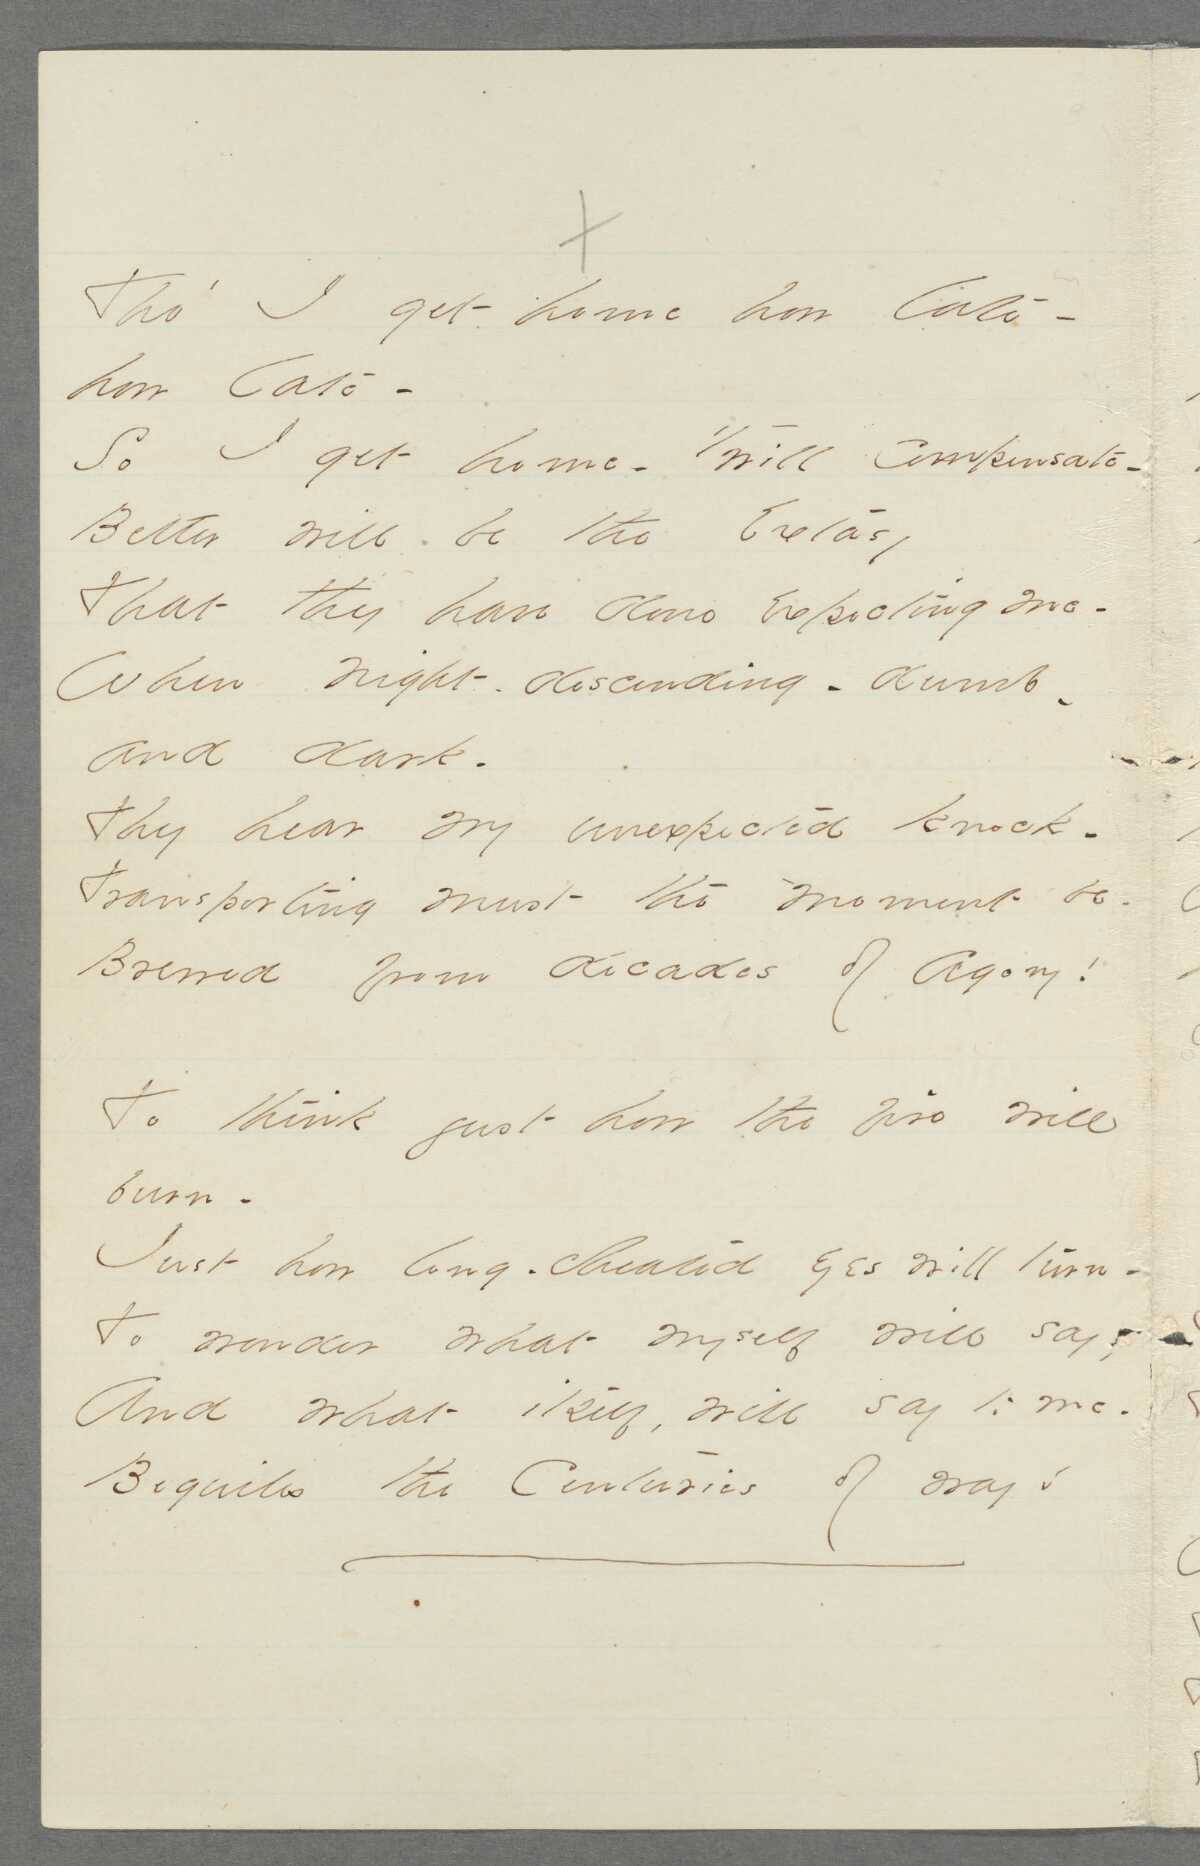 Tho' I get home how late -
how late -
So I get home - 'twill compensate -
Better will be the Extasy
That they have done expecting me -
When night - descending - dumb -
and dark -
They hear my unexpected knock -
Transporting must the moment be -
Brewed from decades of Agony!
To think just how the fire will
burn -
Just how long-cheated eyes will turn -
To wonder what myself will say,
And what itself, will say to me -
Beguiles the Centuries of way!